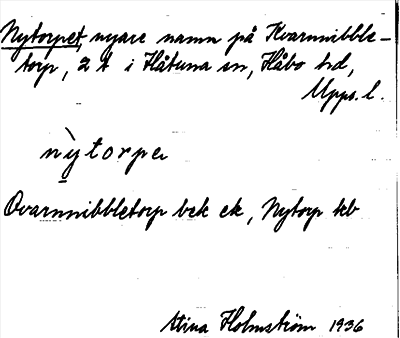 Nytorpet, nyare namn på Kvarnnibble-
torp, 2 t i Håtuna sn, Håbo hd,
Upps. l.
nỳtorpe
Qvarnnibbletorp bek ek, Nytorp kb
Stina Holmström 1936